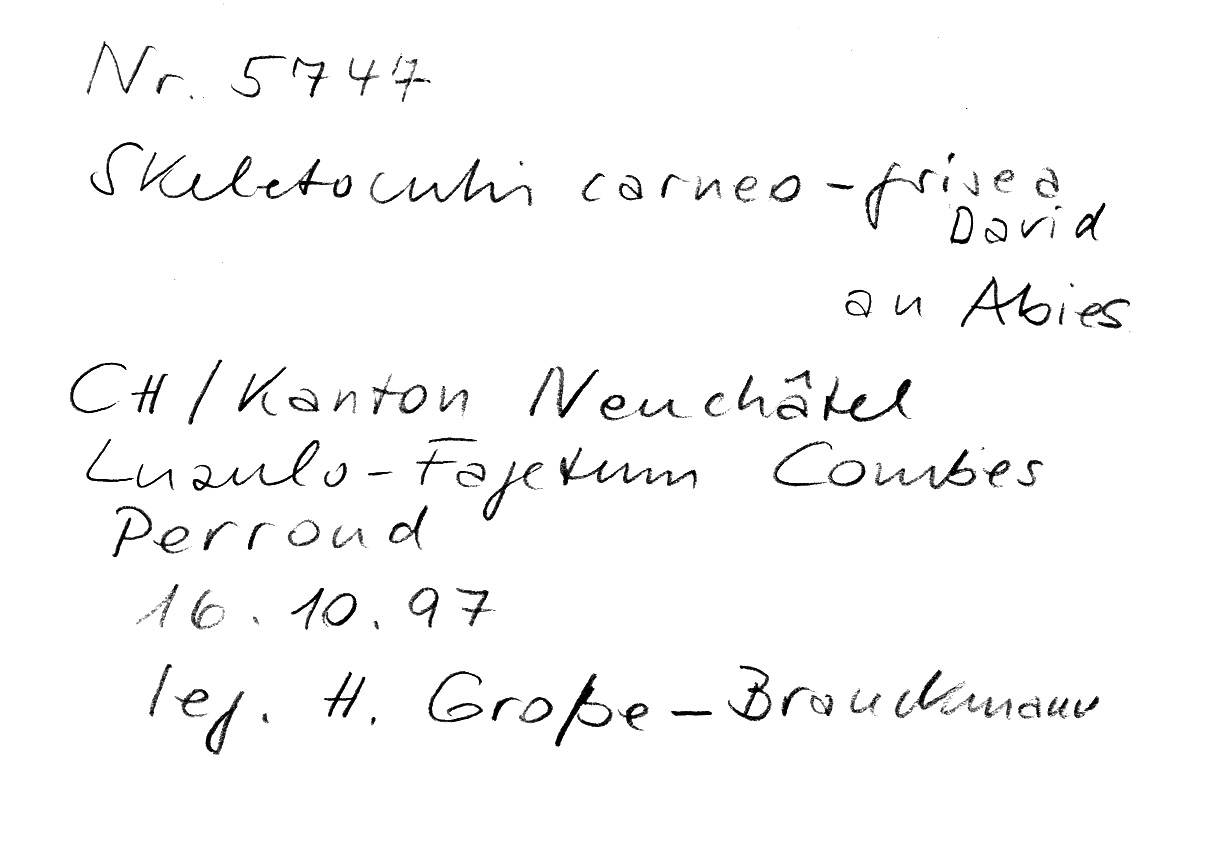 Nr. 5747
Skeletocutis carneo-grisea
David
an Abies
CH/Kanton Neuchâtel
Luzulo-Fagetum Combes
Perroud
16.10.97
leg. H. Große-Brauckmann